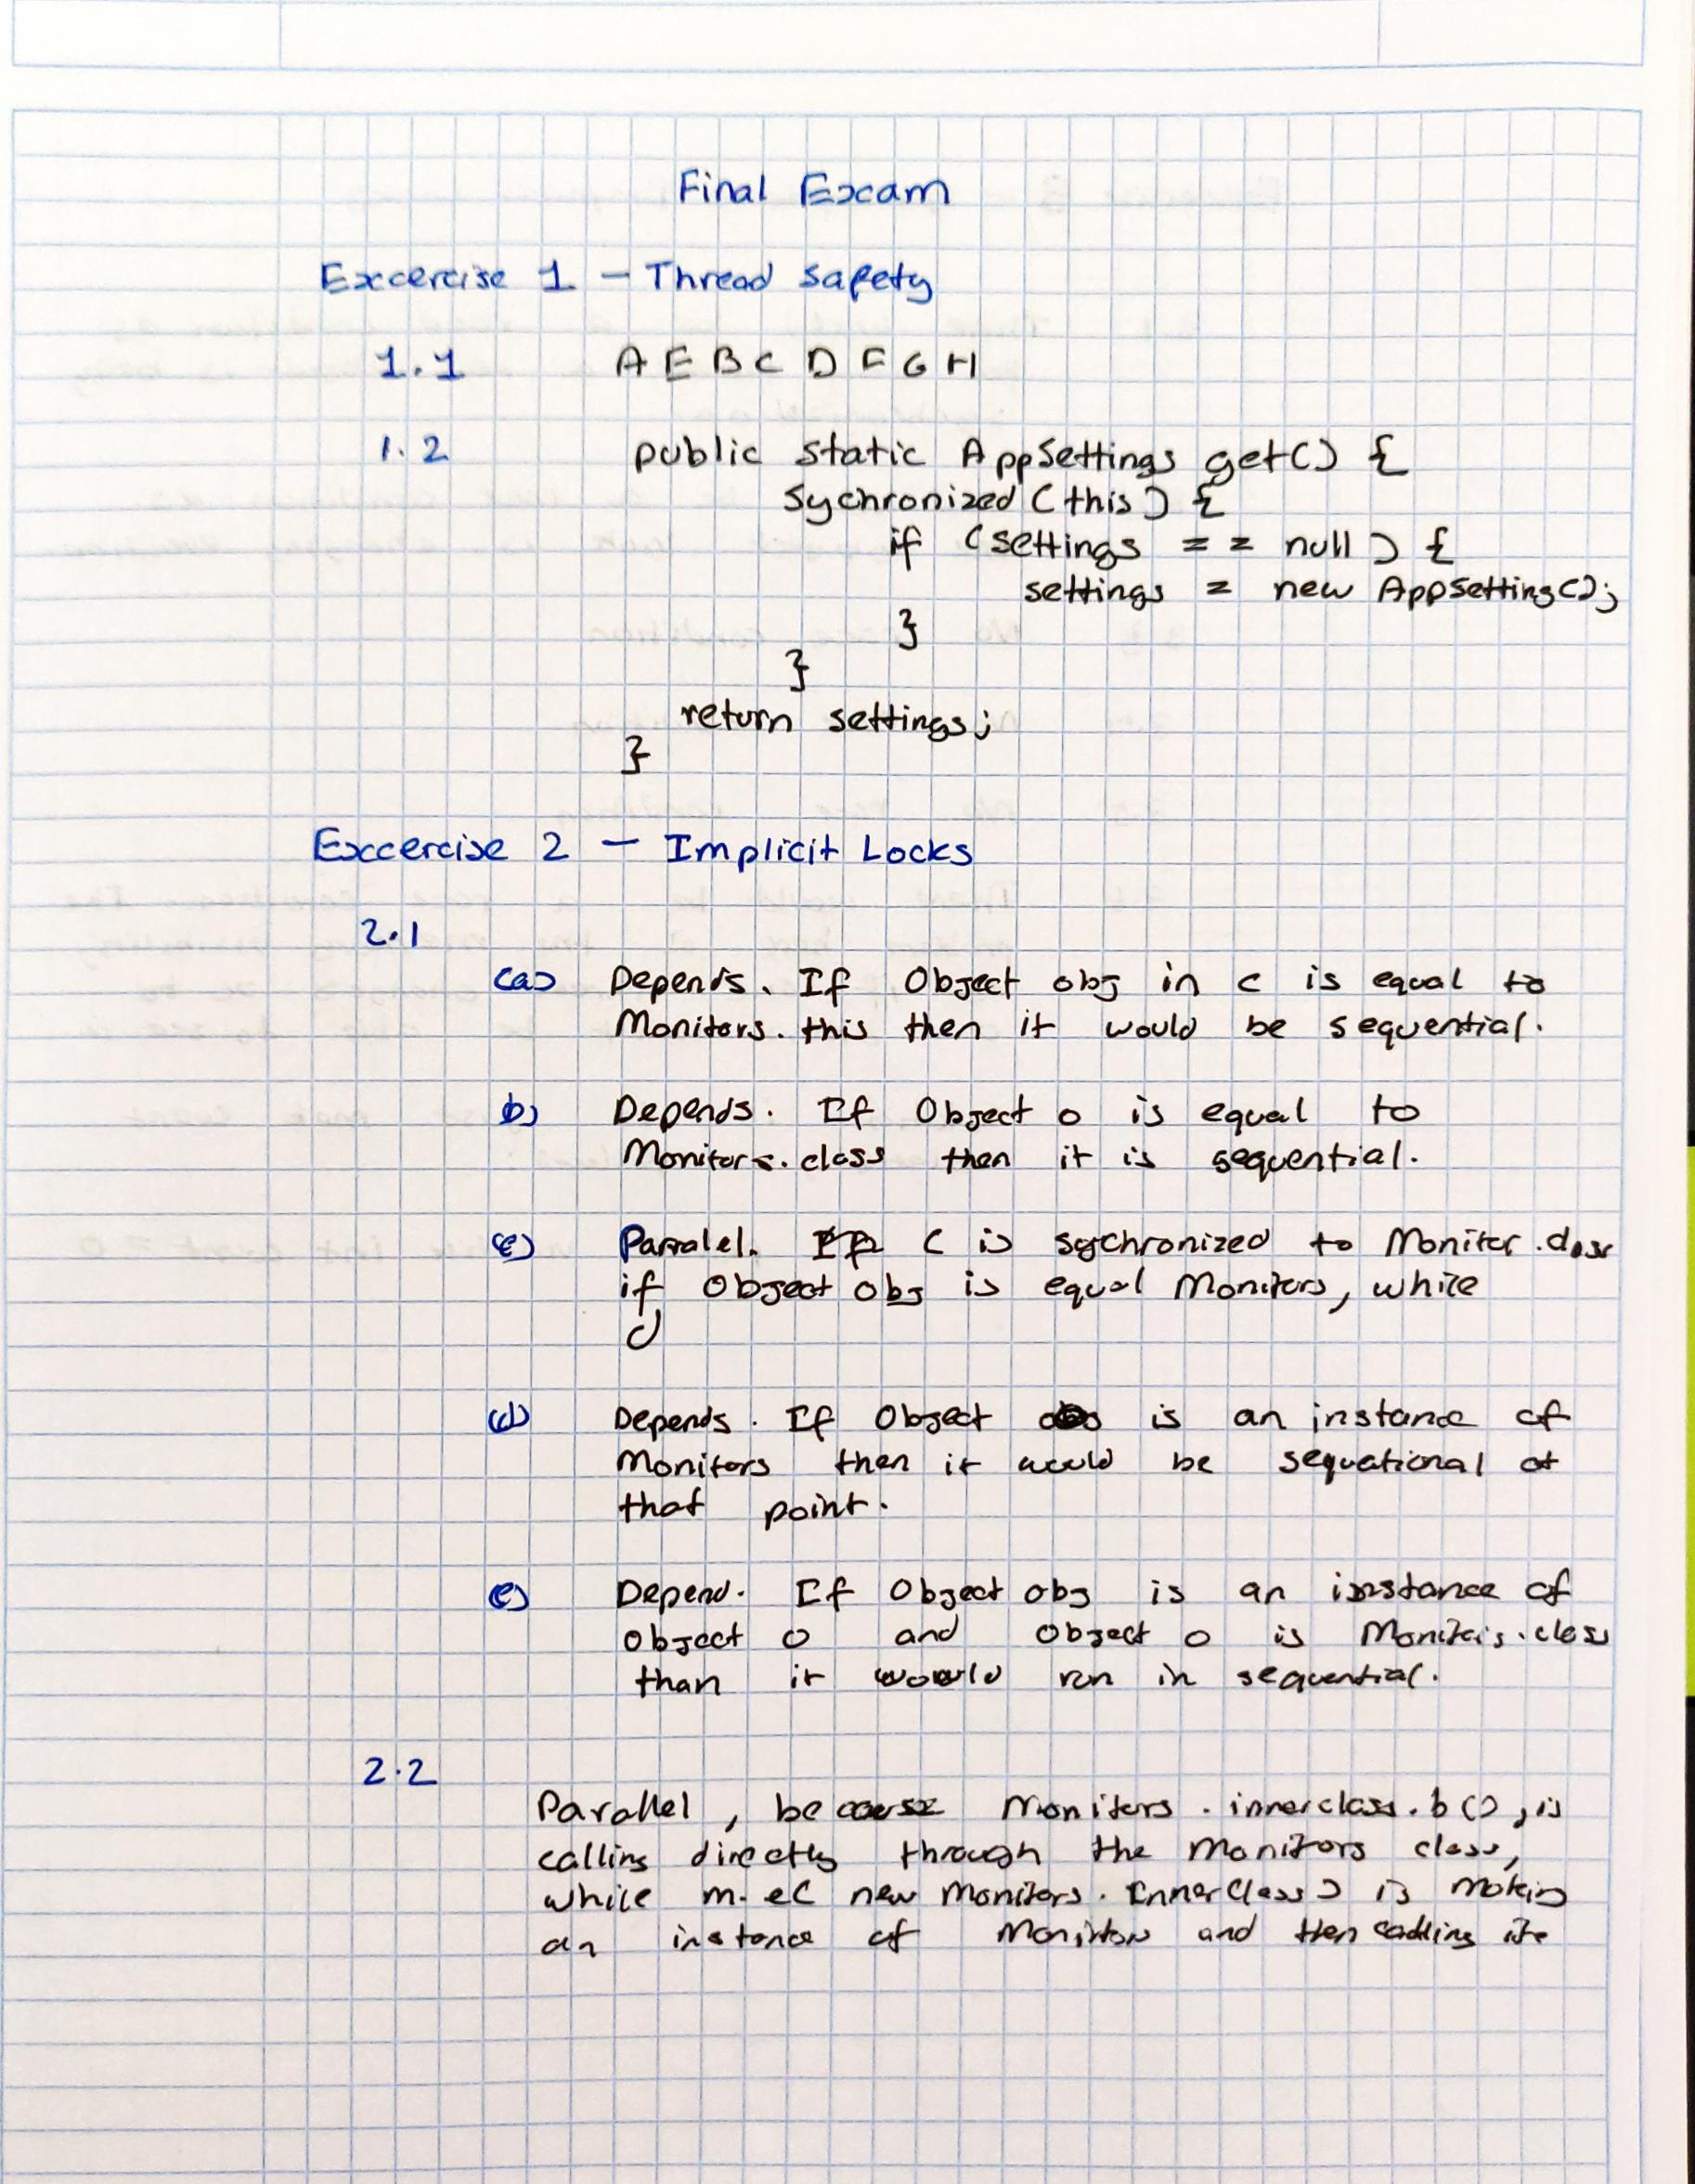 Final Excam
Excercise 1 - Thread Safety
1.1 A E B C D F G H
1.2 public static AppSettings get() {
Sychronized (this) {
if (settings == null) {
settings = new AppSetting();
}
}
return settings;
}
Excercise 2 - Implicit Locks
2.1
(a) Depends. If Object obj in c is equal to
Monitors.this then it would be sequential.
b) Depends. If Object o is equal to
Monitors.class then it is sequential.
(c) Parralel. C is sychronized to Monitor.class
if Object obj is equal Monitors, while
d
(d) Depends. If Object is an instance of
Monitors then it would be sequational at
that point.
(e) Depend. If Object obj is an instance of
Object o and Object o is Monitors.class
than it would run in sequential.
2.2
Parallel, because Monitors.innerclass.b(), is
calling directly through the Monitors class,
while m.e( new Monitors.InnerClass) is making
an instance of Monitors and then calling